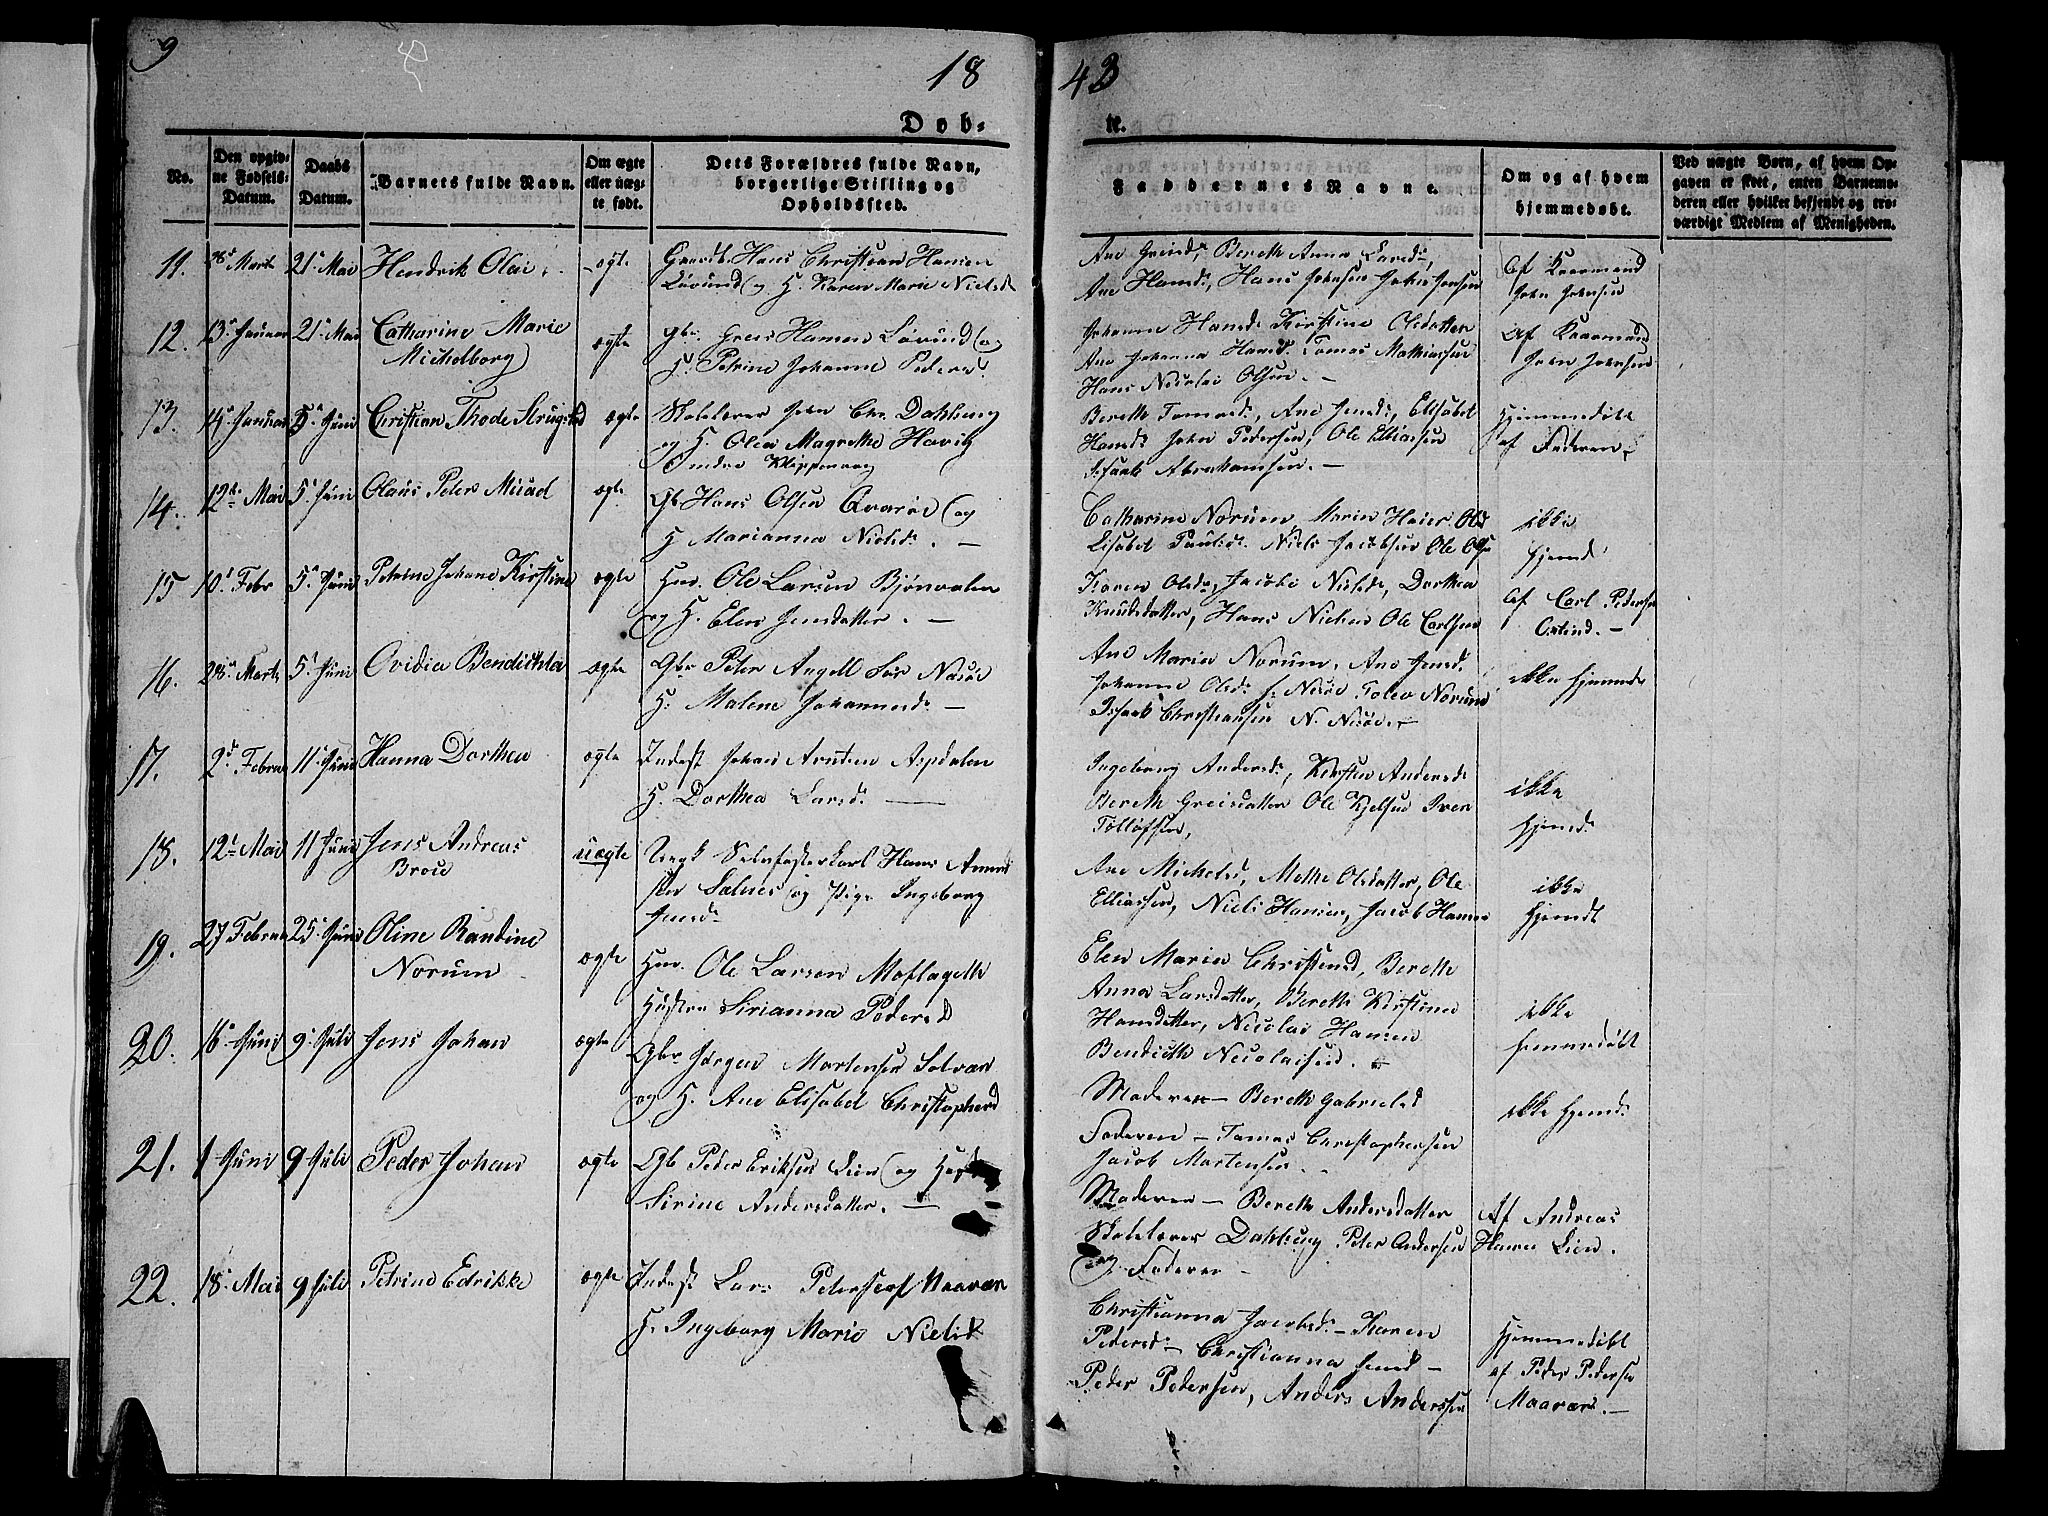 9
18 43
Døb-
te.
No.
Den opgiv-
ne Fødsels-
Datum.
Daabs
Datum.
Barnets fulde Navn.
Om ægte
eller uæg-
te født.
Dets Forældres fulde Navn,
borgerlige Stilling og
Opholdssted.
Faddernes Navne.
Om og af hvem
hjemmedøbt.
Ved uægte Børn, af hvem Op-
gaven er skeet, enten Barnemo-
deren eller hvilket bekjendt og tro-
værdigt Medlem af Menigheden.
11. 28 Marts 21 Mai Hendrik Olai ægte Hans Christian Hansen
Lovund og H. Karen Marie Nielsd
Ane Greisd, Bereth Anna Larsd,
Ane Hansd, Hans Johnsen John Jensen
Af Kaarmand
John Johnsen
12. 13 Januar 21 Mai Catharine Marie
Michelborg
ægte Gbr. Greis Hansen Lovund og
H. Petrine Johanne Peders
Johanne Hansd Kirstine Olsdatter
Ane Johanna Hansd. Tomas Mathiassen
Hans Nicolai Olsen. –
Af Kaarmand
John Johnsen
13. 14 Januar 5 Juni Christian Thode Strugstad ægte Skolelærer John Chr. Dahlberg
og H. Olea Magrethe Havig
Indre Klippenvaag
Bereth Tomasd, Ane Jensd, Elisabet
Hansd John Pedersen, Ole Elliassen
Isaak Abrahamsen. –
Hjemmedøbt
af Faderen
14. 12 Mai 5 Juni Olaus Peter Musad ægte Gb Hans Olsen Qvarøe og
H. Marianna Nielsd. –
Catharine Norum, Maren Heier Olsd
Lisabet Paulsd. Niels Jacobsen Ole Ols
ikke
hjemd
15 10 Febr 5 Juni Petrine Johane Kirstine ægte Hmd. Ole Larsen Bjønvalen
og H. Elen Jensdatter. –
Karen Olsd, Jacobi Nielsd, Dorthea
Knudsdatter, Hans Nielsen Ole Carlsen
Af Carl Pedersen
16. 28 Marts 5 Juni Ovidia Bendichta ægte Gbr Peter Angell Sør Nesøe
H. Malene Johannesd. –
Ane Maria Norum, Ane Jensd.
Johanne Olsd S. Nesøe Tolev Norum
Isaak Christiansen N. Nesøe. –
ikke hjemmd
17. 2 Februar 11 Juni Hanna Dorthea ægte Inderst Johan Arntsen Aspdalen
H. Dorthea Larsd. –
Ingeborg Andersd, Kirsten Andersd
Bereth Greisdatter Ole Kjelsen Iver
Tolløfsen,
ikke
hjemd
18. 12 Mai 11 Juni Jens Andreas
Broe
uægte Ungk Selvfosterkarl Hans
Selnes og Pige Ingeborg
Jensd
Ane Michelsd, Methe Olsdatter, Ole
Elliassen, Niels Hansen, Jacob Hansen
ikke
hjemdt
19. 27 Februar 25 Juni Oline Randine
Norum
ægte Hmd. Ole Larsen Moflageth
Hustru Sirianna Pedersd
Elen Maria Christensd, Bereth
Anna Larsdatter, Bereth Kirstina
Hansdatter, Nicolai Hansen
Bendicth Nicolaisen.
ikke
hjemmedøbt
20. 16 Juni 9 Juli Jens Johan ægte Gbr Jørgen Mortensen Solvær
og H. Ane Elisabet Christophersd
Moderen – Bereth Gabrielsd
Faderen – Tomas Christophersen
Jacob Mortensen.
ikke hjemd
21. 1 Juni 9 Juli Peder Johan ægte Gb Peder Eriksen Lien og Hust
Sirine Andersdatter. –
Moderen – Bereth Andersdatter
Skolelærer Dahlberg Peter Andersen
og Faderen –
Af Andreas
Hansen Lien.
22. 18 Mai 9 Juli Petrine Edrikke ægte Inderst Lars Petersen Maavær
H. Ingeborg Marie Nielsd
Christianna Jacobsd – Karen
Pedersd – Christianna Jensd –
Peder Pedersen, Anders Anderssen
Hjemmedøbt
af Peder Pedersen
Maavær. –